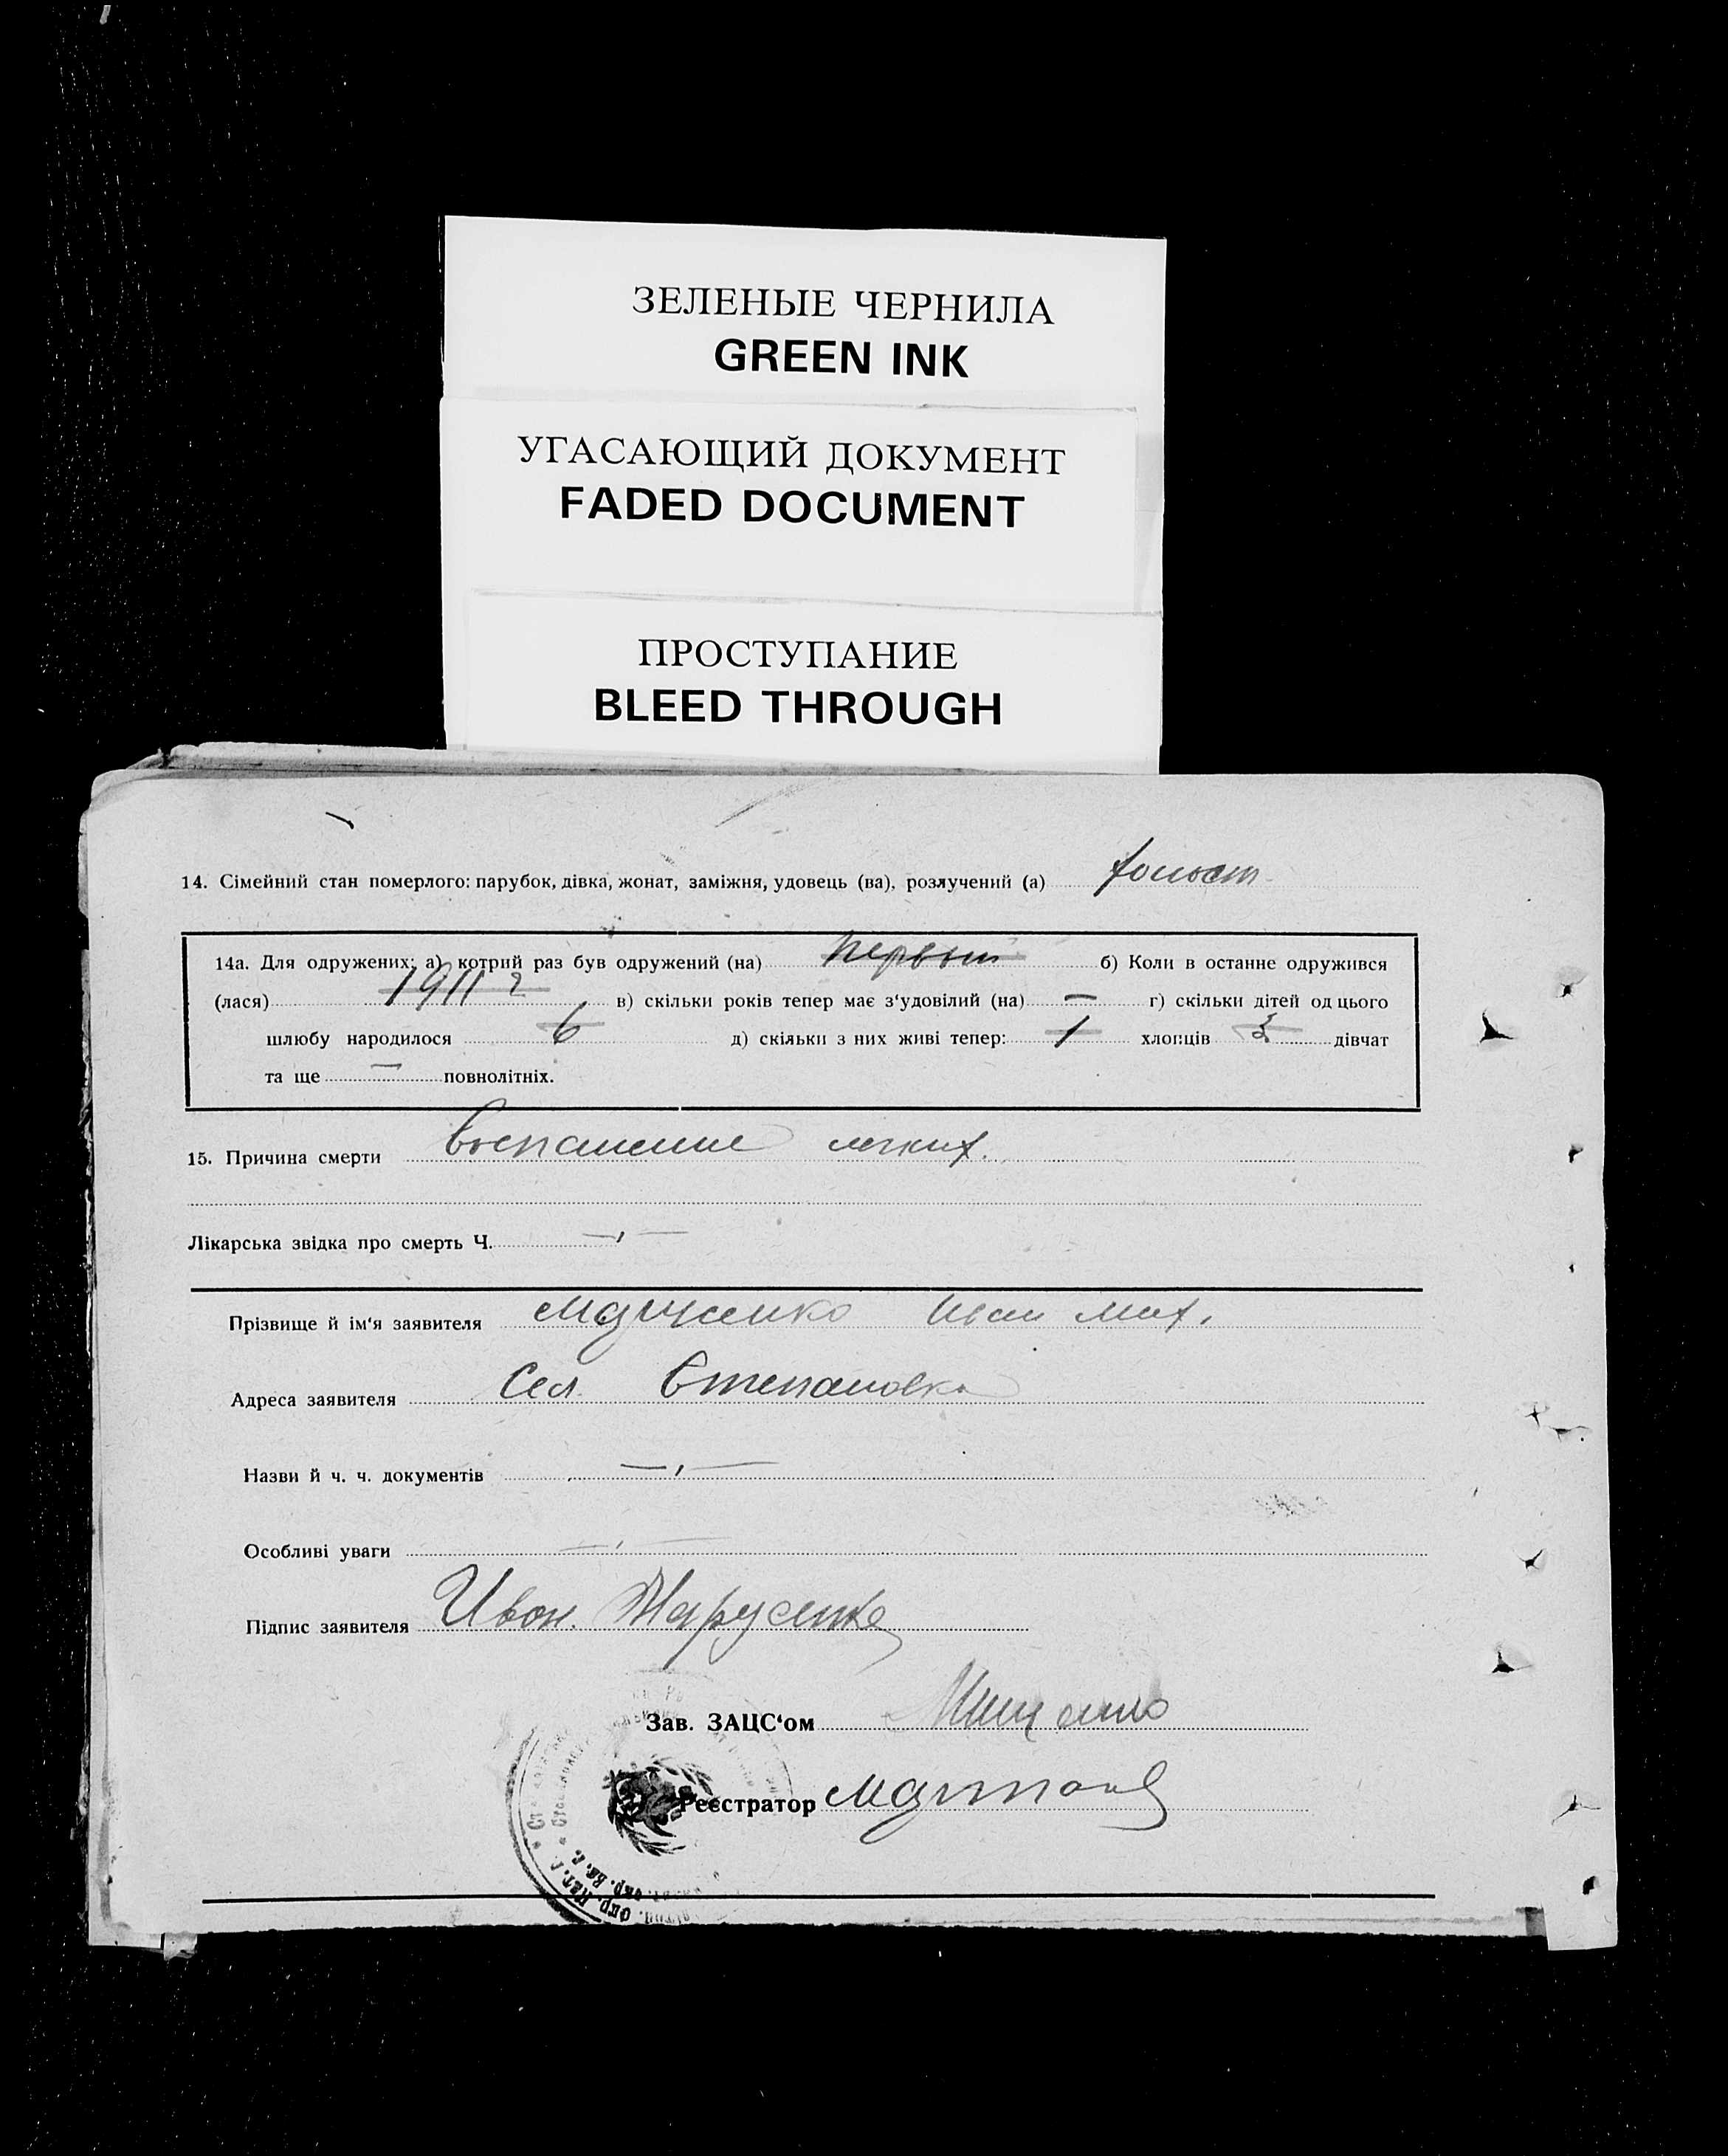 ЗЕЛЕНЫЕ ЧЕРНИЛА
GREEN INK
УГАСАЮЩИЙ ДОКУМЕНТ
FADED DOCUMENT
ПРОСТУПАНИЕ
BLEED THROUGH
14. Сімейний стан померлого: парубок, дівка, жонат, заміжня, удовець (ва), розлучений (а) холост
14а. Для одружених: а) котрий раз був одружений (на) первый б) Коли в останне одружився
(лася) 1911 г в) скільки років тепер має з'удовілий (на) — г) скільки дітей од цього
шлюбу народилося 6 д) скільки з них живі тепер: 1 хлопців 3 дівчат
та ще — повнолітніх.
15. Причина смерти воспаление легких.
Лікарська звідка про смерть Ч. —,—
Прізвище й ім'я заявителя Иван Мих.
Адреса заявителя Сел. Степановка
Назви й ч. ч. документів —,—
Особливі уваги —,—
Підпис заявителя Ивон.
Зав. ЗАЦС'ом
Реєстратор